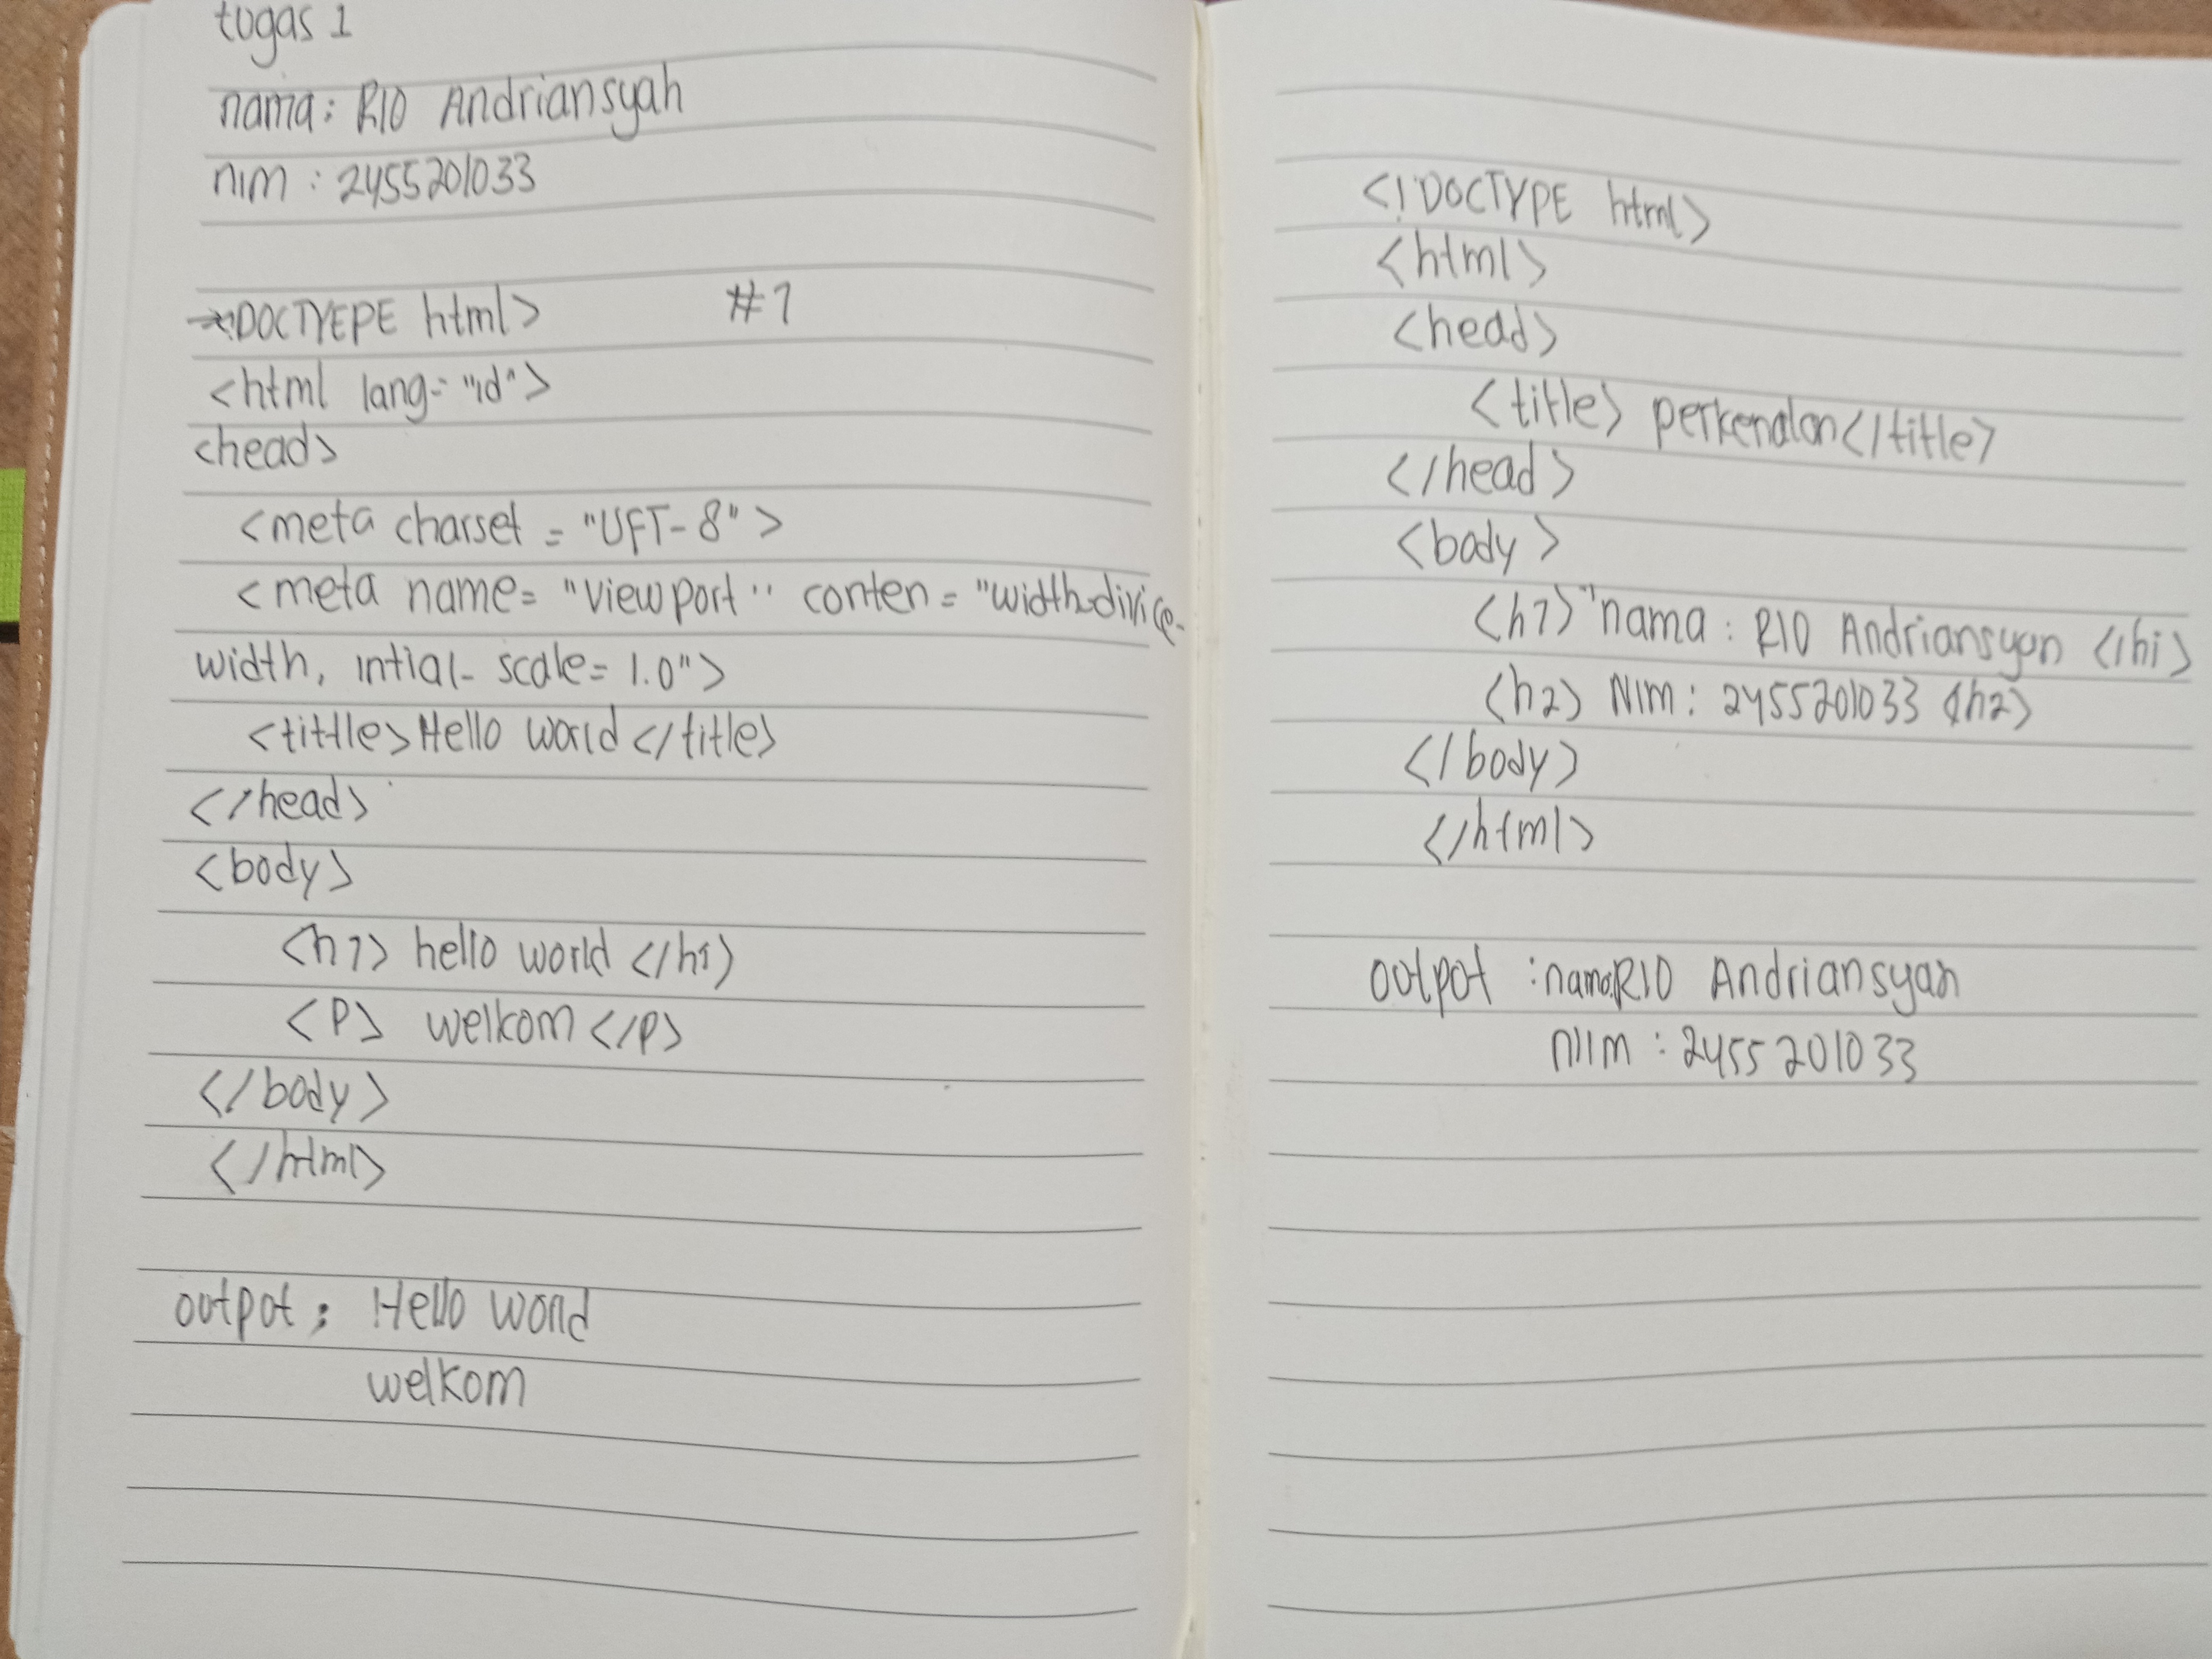 tugas 1
nama: RIO Andriansyah
nim : 2455201033
<!DOCTYEPE html> #1
<html lang="id">
<head>
<meta charset = "UFT-8">
<meta name= "viewport" conten = "width=divice-
width, intial- scale= 1.0">
<tittle>Hello world </title>
</head>
<body>
<h1> hello world </h1>
<p> welkom </p>
</body>
</html>
outpot : Hello world
welkom
<!DOCTYPE html>
<html>
<head>
<title> perkenalan</title>
</head>
<body>
<h1>"nama : RIO Andriansyah </h1>
<h2> NIM : 2455201033 </h2>
</body>
</html>
outpot : nama:RIO Andriansyah
nim : 2455201033